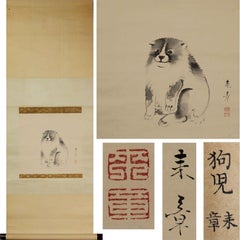 来章
来章
狗児
来章